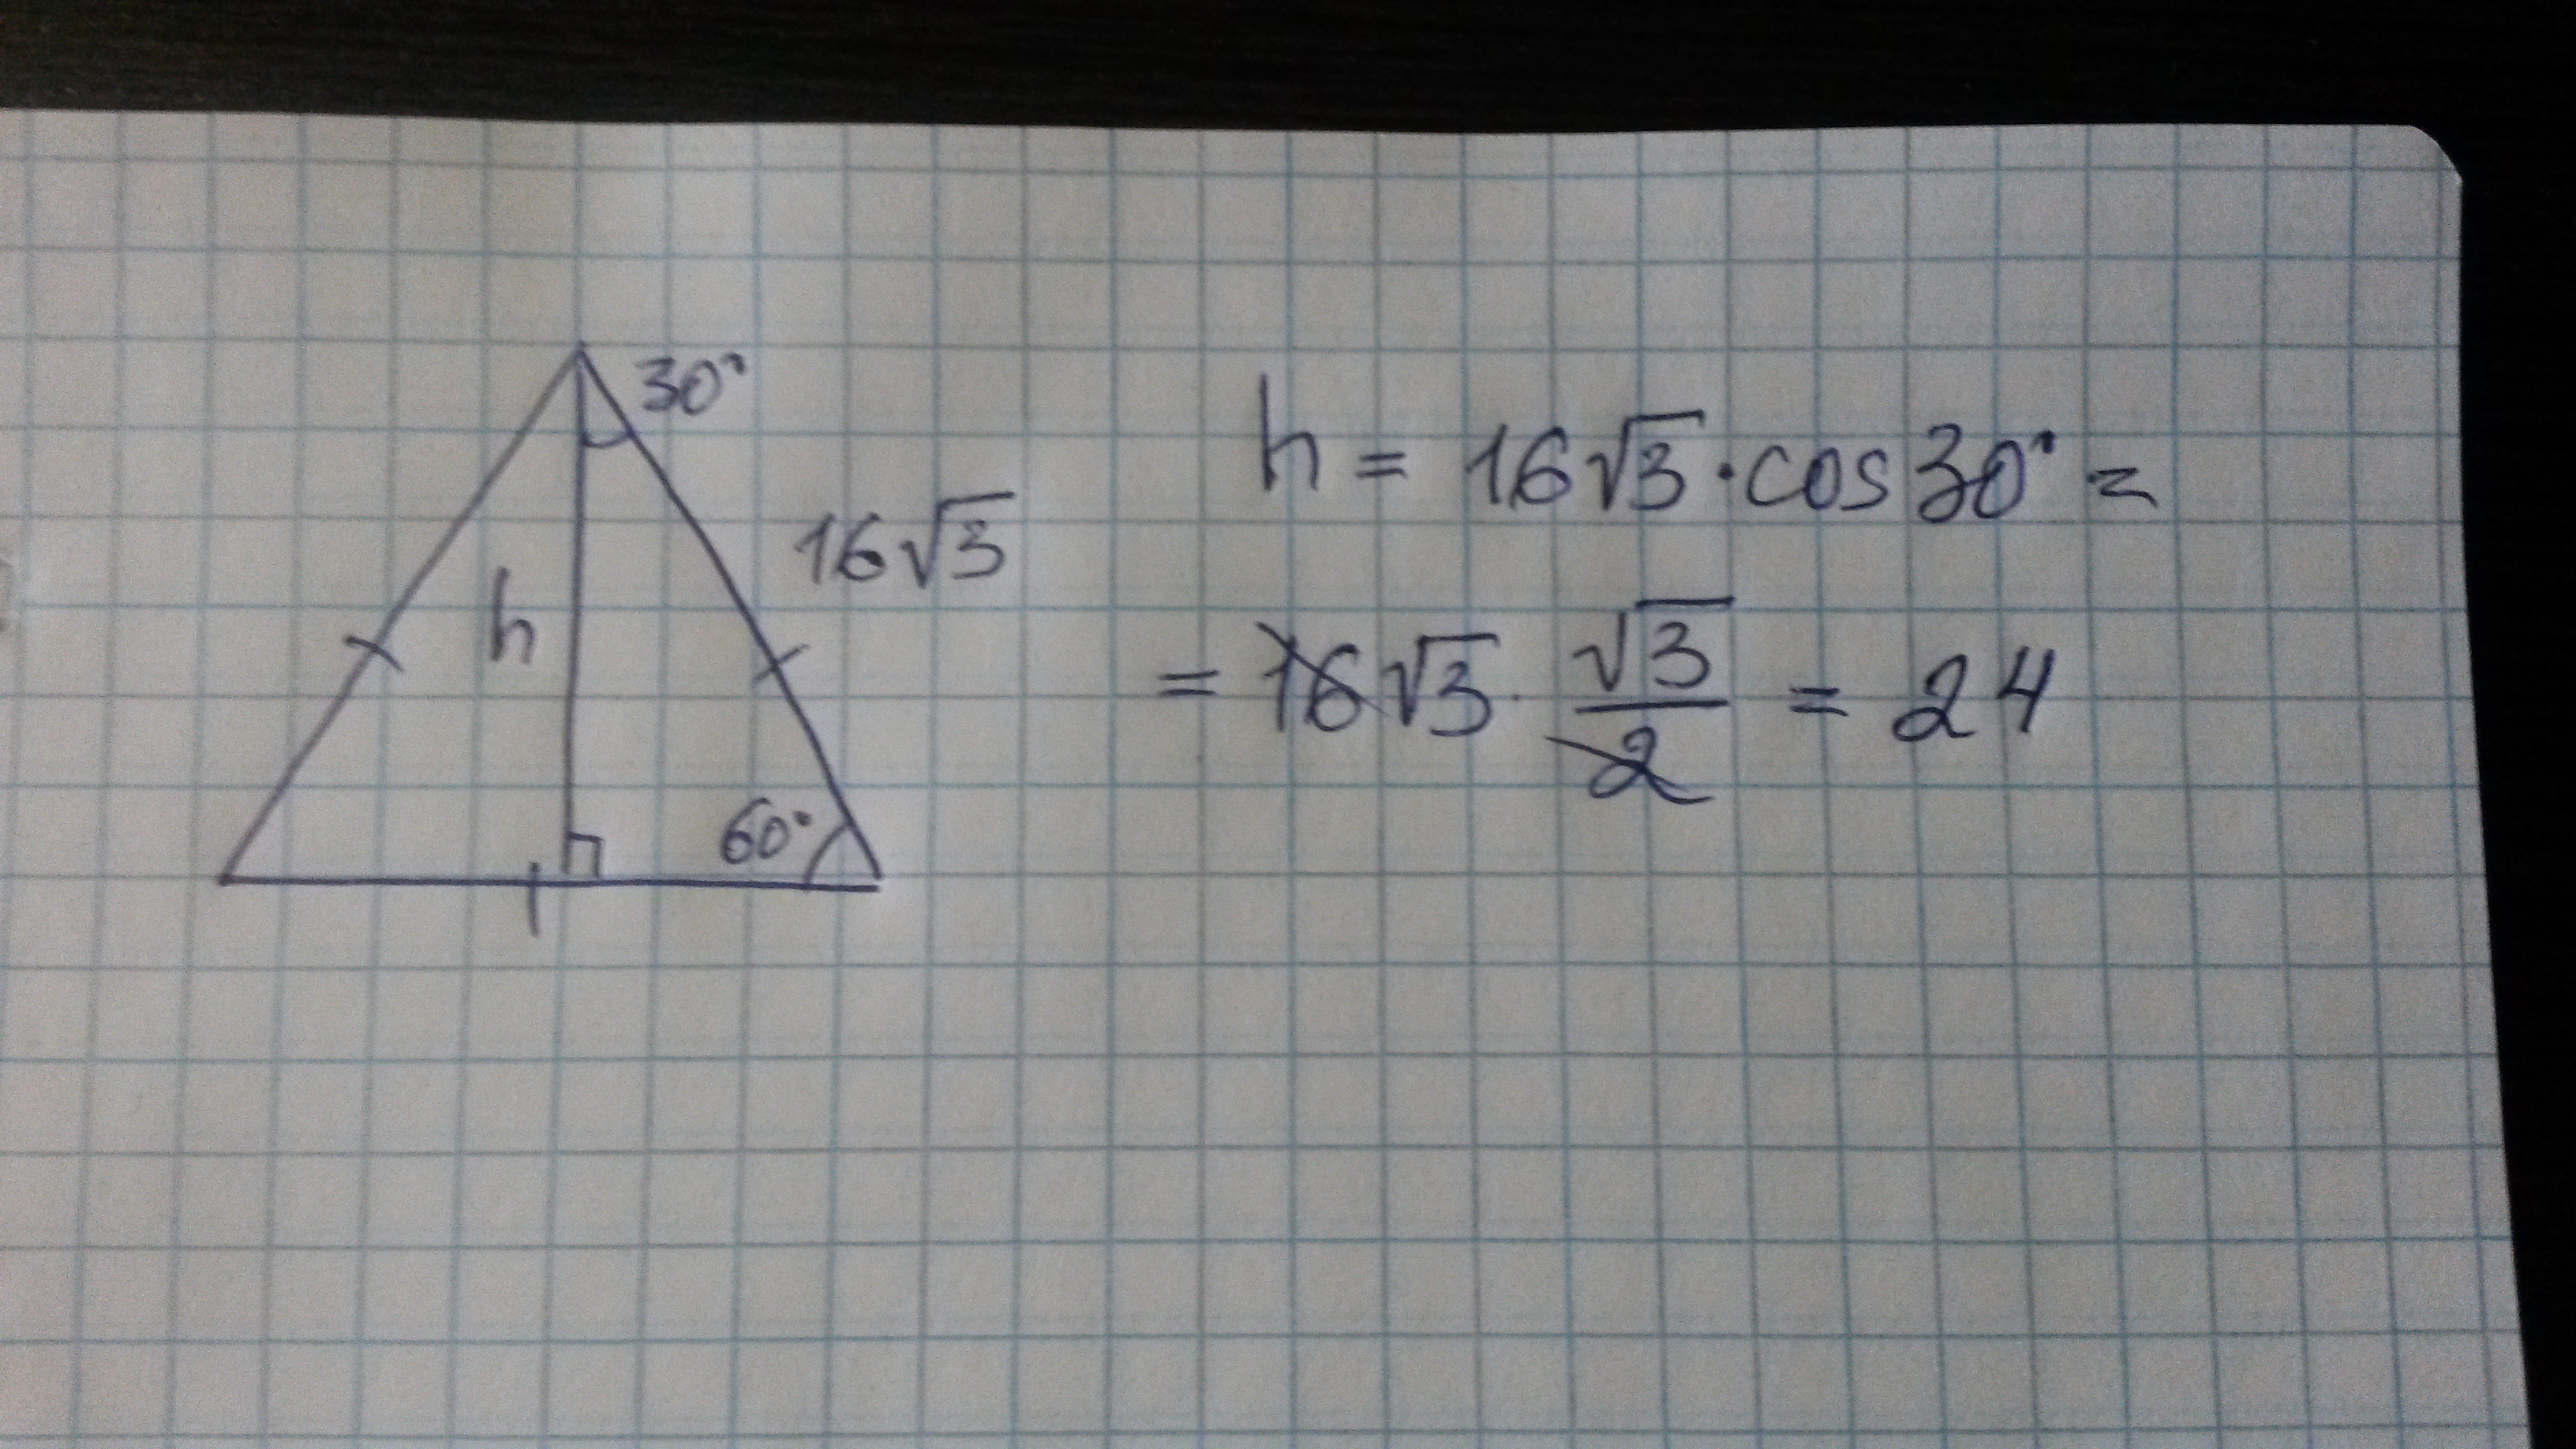 30°
16√3
h
60°
h = 16√3 · cos 30° =
= 16√3 · √3/2 = 24